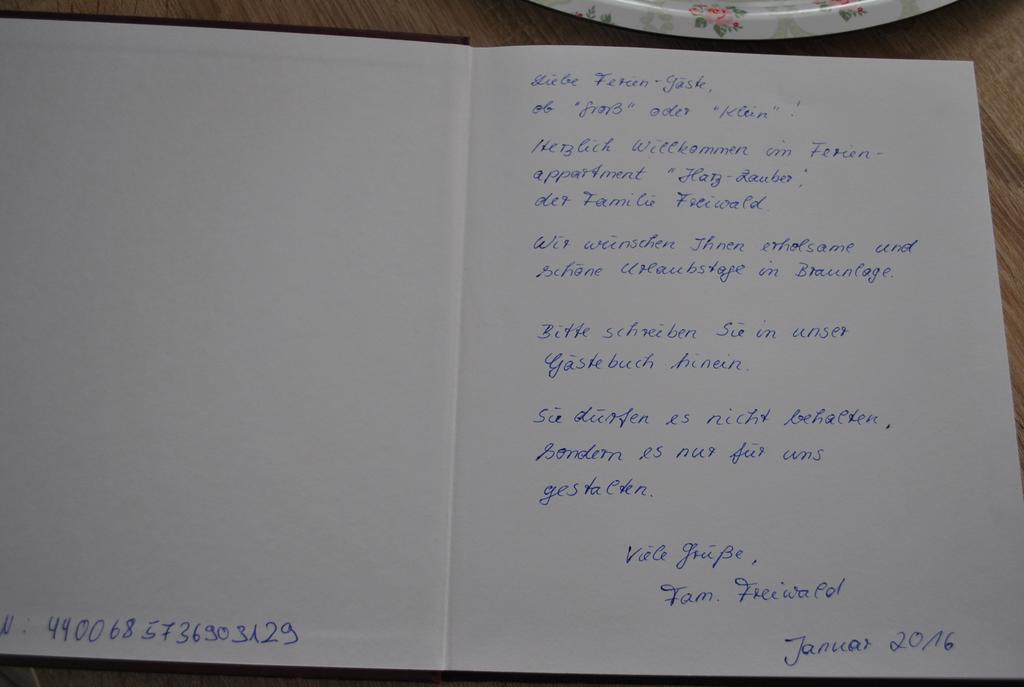 N: 4400685736903129
Liebe Ferien-Gäste,
ob "Groß" oder "Klein"!
Herzlich Willkommen im Ferien-
appartment "Harz-Zauber",
der Familie Freiwald.
Wir wünschen Ihnen erholsame und
schöne Urlaubstage in Braunlage.
Bitte schreiben Sie in unser
Gästebuch hinein.
Sie dürfen es nicht behalten,
sondern es nur für uns
gestalten.
Viele Grüße,
Fam. Freiwald
Januar 2016